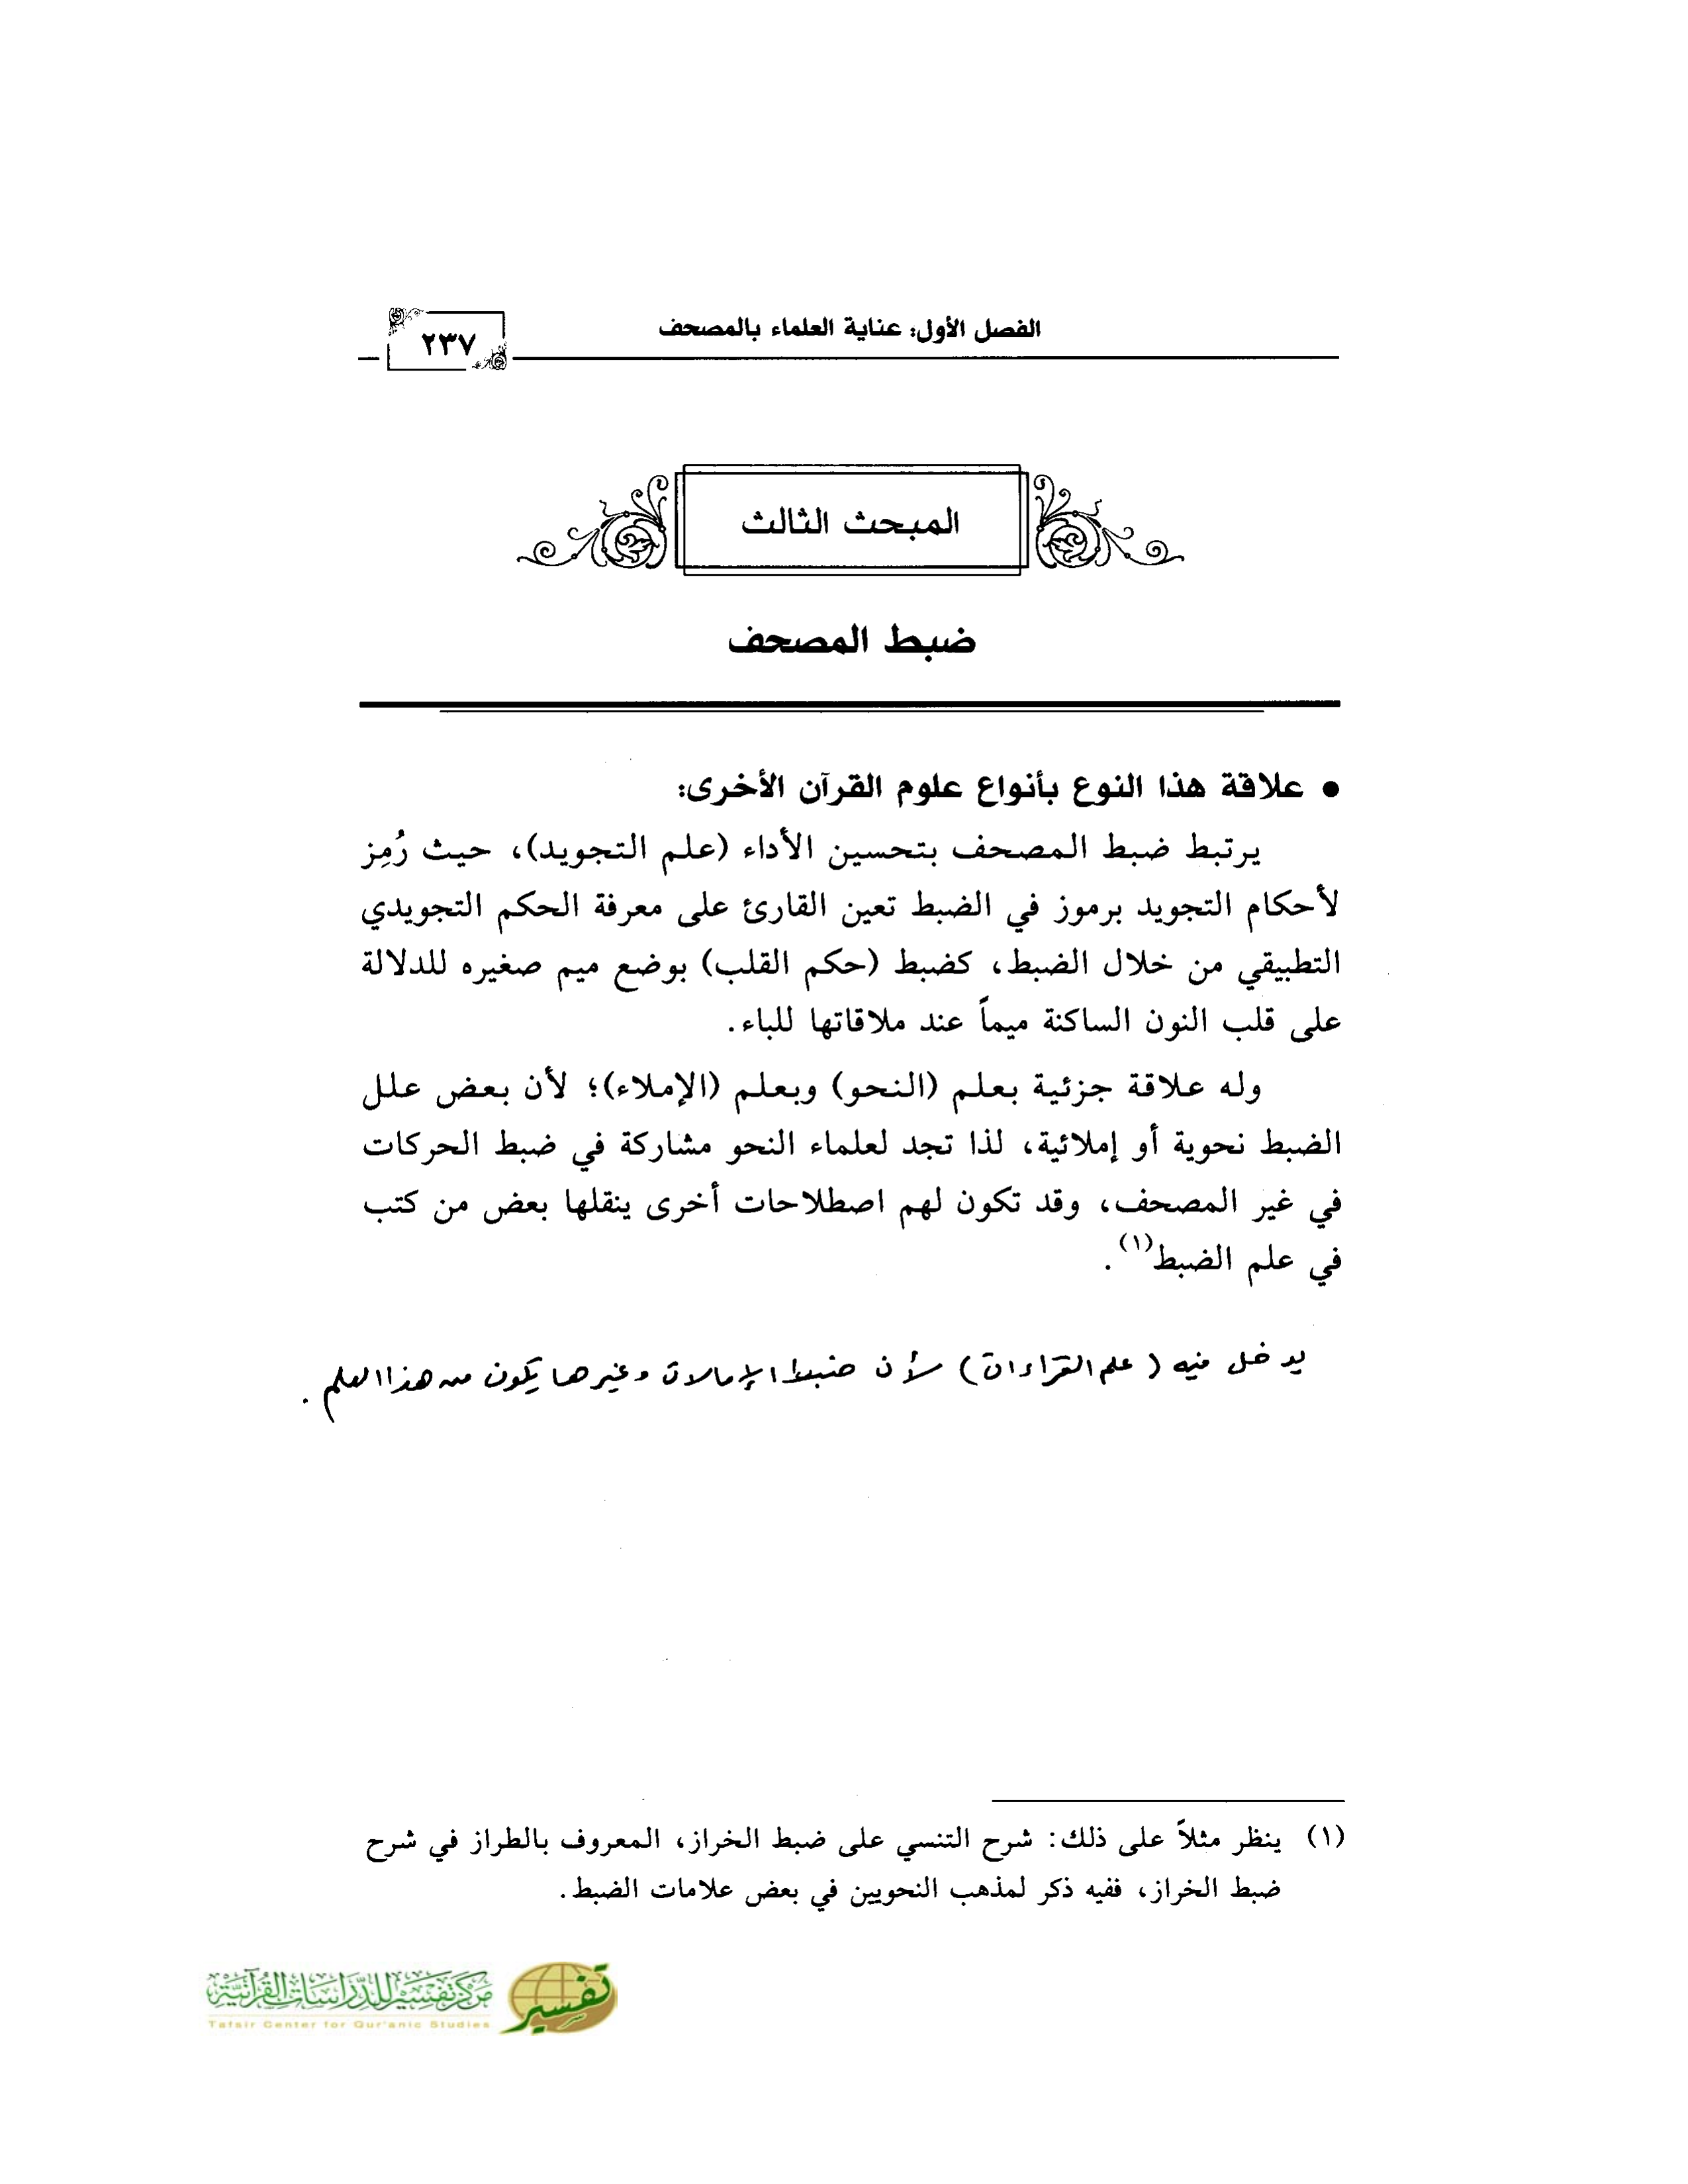 الفصل الأول: عناية العلماء بالمصحف
٢٣٧
المبحث الثالث
ضبط المصحف
• علاقة هذا النوع بأنواع علوم القرآن الأخرى:
يرتبط ضبط المصحف بتحسين الأداء (علم التجويد)، حيث رُمِز
لأحكام التجويد برموز في الضبط تعين القارئ على معرفة الحكم التجويدي
التطبيقي من خلال الضبط، كضبط (حكم القلب) بوضع ميم صغيره للدلالة
على قلب النون الساكنة ميماً عند ملاقاتها للباء.
وله علاقة جزئية بعلم (النحو) وبعلم (الإملاء)؛ لأن بعض علل
الضبط نحوية أو إملائية، لذا تجد لعلماء النحو مشاركة في ضبط الحركات
في غير المصحف، وقد تكون لهم اصطلاحات أخرى ينقلها بعض من كتب
في علم الضبط(١).
يدخل فيه (علم القراءات) لأن ضبط الإمالات وغيرها يكون من هذا العلم.
(١) ينظر مثلاً على ذلك: شرح التنسي على ضبط الخراز، المعروف بالطراز في شرح
ضبط الخراز، ففيه ذكر لمذهب النحويين في بعض علامات الضبط.
مركز تفسير للدراسات القرآنية
Tafsir Center for Qur'anic Studies
تفسير